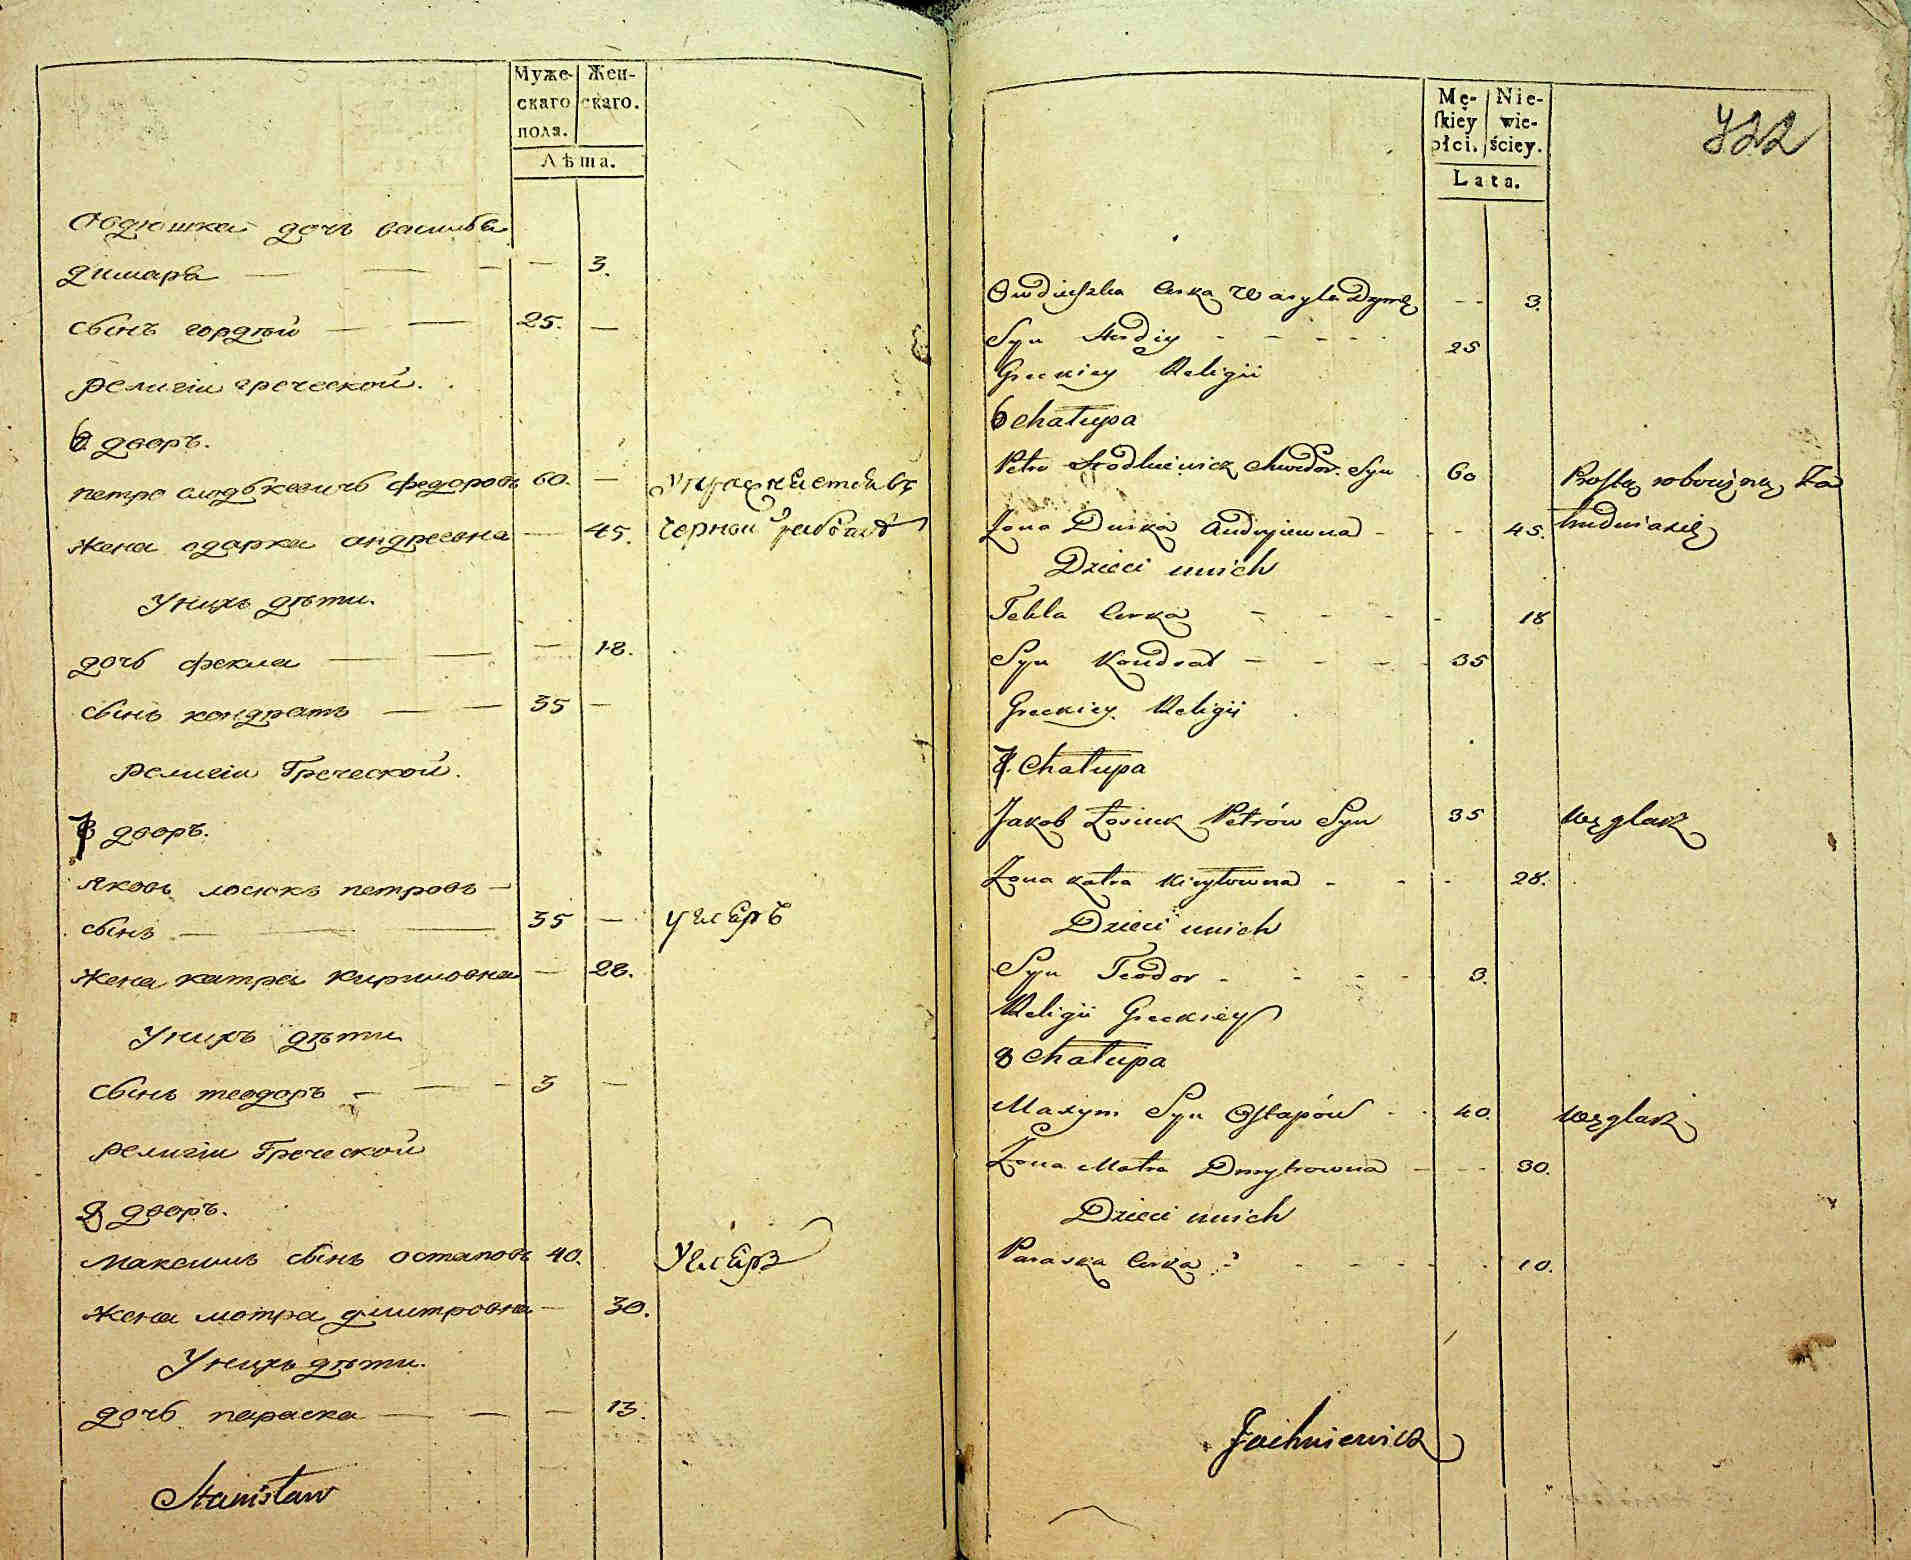 Муже-
скаго
поля.
Жен-
скаго.
Лѣта.
Овдюшка дочь василья
димара — — — — 3.
сынъ гордѣй — — 25. —
религіи греческой.
6 дворъ.
петро слодькевичь федоровъ 60. —
жена одарка андреевна — 45.
Упражняется въ
черной работѣ
У нихъ дѣти.
дочь фекла — — — 18.
сынъ кондратъ — — 35 —
религіи Греческой.
7 дворъ.
яковъ лосюкъ петровъ —
сынъ — — — 35 — углярь
жена катря кириловна — 28.
У нихъ дѣти
сынъ теодоръ — — — 3 —
религіи Греческой
8 дворъ.
максимъ сынъ остаповъ 40. углярь
жена мотра дмитровна — 30.
У нихъ дѣти.
дочь параска — — — 13.
Stanisław
Mę-
skiey
płci.
Nie-
wie-
ściey.
Lata.
722
Owdiuszka Corka Wasyla Dymę - - 3.
Syn Hordiy - - - - - 25
Greckiey Religii
6 Chałupa
Petro Słodkiewicz Chwedor. Syn 60
Żona Darka Andryiewna - - - 45.
Prostą robocizną Za
trudnia się
Dzieci unich
Tekla Corka - - - - 18
Syn Kondrat - - - - 35
Greckiey Religii
7. Chałupa
Jakob Łosiuk Petrów Syn 35 węglarz
Żona Katra Kiryłowna - - - 28.
Dzieci unich
Syn Teodor - - - - 3.
Religii Greckiey
8 Chałupa
Maxym Syn Ostapów - - 40. węglarz
Żona Motra Dmytrowna - - - 30.
Dzieci unich
Paraska Corka - - - - - 10.
Jachniewicz